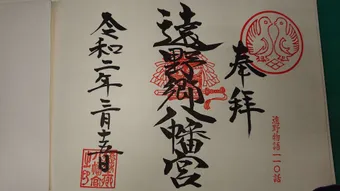 奉拝
遠野郷八幡宮
令和二年二月十五日
遠野物語一一〇話